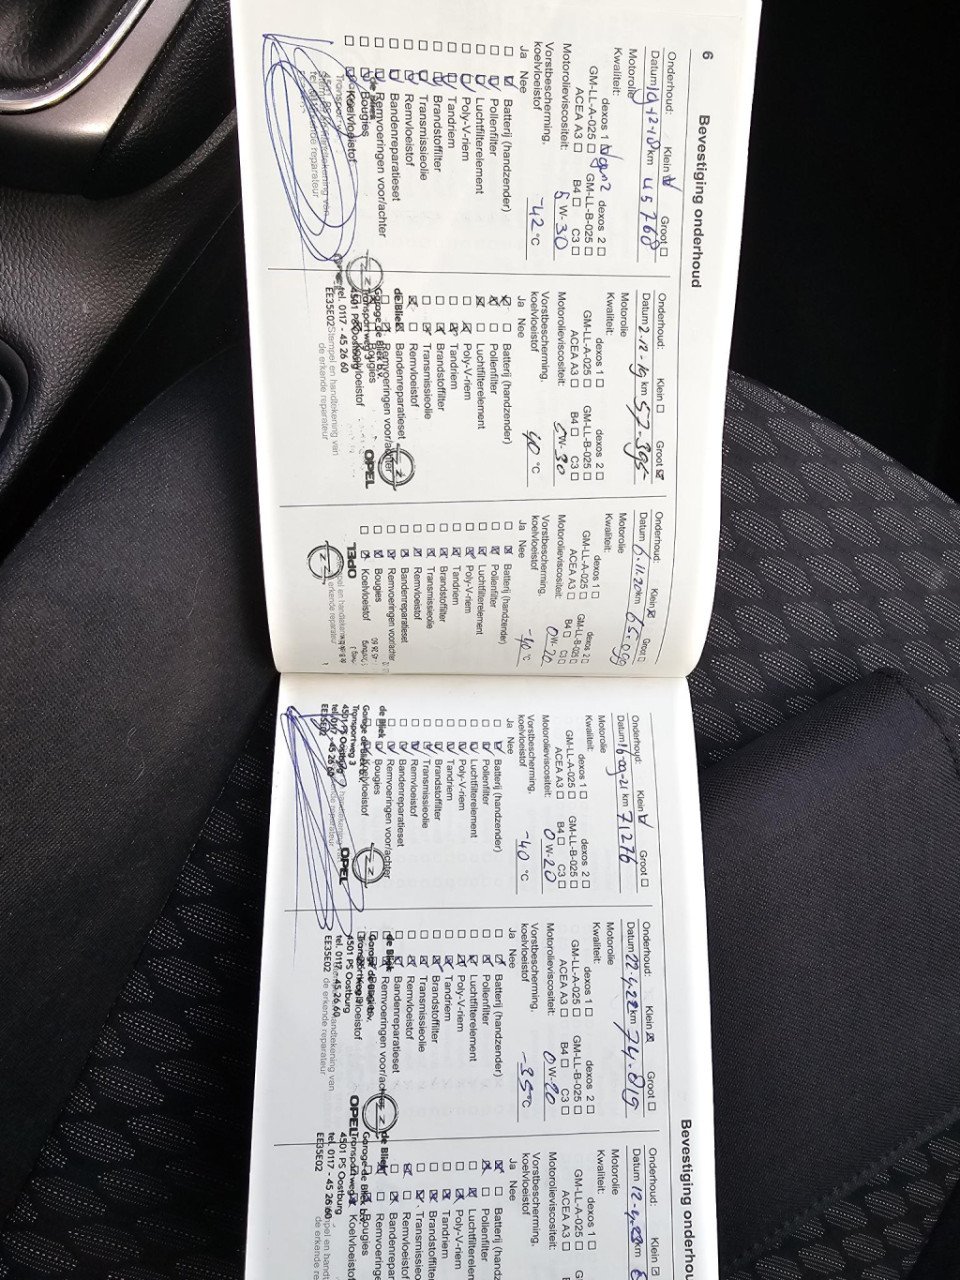 6
Bevestiging onderhoud
Onderhoud: Klein Groot
Datum 19-12-18 km 45768
Motorolie
Kwaliteit:
dexos 1 dexos 2
GM-LL-A-025 GM-LL-B-025
ACEA A3 B4 C3
Motorolieviscositeit: 5W-30
Vorstbescherming,
koelvloeistof -42 °C
Ja Nee
Batterij (handzender)
Pollenfilter
Luchtfilterelement
Poly-V-riem
Tandriem
Brandstoffilter
Transmissieolie
Remvloeistof
Bandenreparatieset
Remvoeringen voor/achter
Bougies
Koelvloeistof
Onderhoud: Klein Groot
Datum 2-12-19 km 57.395
Motorolie
Kwaliteit:
dexos 1 dexos 2
GM-LL-A-025 GM-LL-B-025
ACEA A3 B4 C3
Motorolieviscositeit: 5W-30
Vorstbescherming,
koelvloeistof 40 °C
Ja Nee
Batterij (handzender)
Pollenfilter
Luchtfilterelement
Poly-V-riem
Tandriem
Brandstoffilter
Transmissieolie
Remvloeistof
Bandenreparatieset
Remvoeringen voor/achter
Bougies
Koelvloeistof
de Bliek
Garage de Bliek b.v.
Transportweg 3
4501 PS Oostburg
tel. 0117 - 45 26 60
EE35E02
Stempel en handtekening van
de erkende reparateur
OPEL
Onderhoud: Klein Groot
Datum 6.11.20 km 65.099
Motorolie
Kwaliteit:
dexos 1 dexos 2
GM-LL-A-025 GM-LL-B-025
ACEA A3 B4 C3
Motorolieviscositeit: 0W-20
Vorstbescherming,
koelvloeistof -40 °C
Ja Nee
Batterij (handzender)
Pollenfilter
Luchtfilterelement
Poly-V-riem
Tandriem
Brandstoffilter
Transmissieolie
Remvloeistof
Bandenreparatieset
Remvoeringen voor/achter
Bougies
Koelvloeistof
OPEL
Onderhoud: Klein Groot
Datum 16-09-21 km 71276
Motorolie
Kwaliteit:
dexos 1 dexos 2
GM-LL-A-025 GM-LL-B-025
ACEA A3 B4 C3
Motorolieviscositeit: 0W-20
Vorstbescherming,
koelvloeistof -40 °C
Ja Nee
Batterij (handzender)
Pollenfilter
Luchtfilterelement
Poly-V-riem
Tandriem
Brandstoffilter
Transmissieolie
Remvloeistof
Bandenreparatieset
Remvoeringen voor/achter
Bougies
Koelvloeistof
de Bliek
Garage de Bliek b.v.
Transportweg 3
4501 PS Oostburg
tel. 0117 - 45 26 60
EE35E02
OPEL
Bevestiging onderhou
Onderhoud: Klein Groot
Datum 22-4-22 km 74.819
Motorolie
Kwaliteit:
dexos 1 dexos 2
GM-LL-A-025 GM-LL-B-025
ACEA A3 B4 C3
Motorolieviscositeit: 0W-20
Vorstbescherming,
koelvloeistof -35 °C
Ja Nee
Batterij (handzender)
Pollenfilter
Luchtfilterelement
Poly-V-riem
Tandriem
Brandstoffilter
Transmissieolie
Remvloeistof
Bandenreparatieset
Remvoeringen voor/achter
Bougies
Koelvloeistof
de Bliek
Garage de Bliek b.v.
Transportweg 3
4501 PS Oostburg
tel. 0117 - 45 26 60
EE35E02
de erkende reparateur
OPEL
Onderhoud: Klein
Datum 12-4-23 km
Motorolie
Kwaliteit:
dexos 1
GM-LL-A-025
ACEA A3
Motorolieviscositeit:
Vorstbescherming,
koelvloeistof
Ja Nee
Batterij (handzen
Pollenfilter
Luchtfilterelement
Poly-V-riem
Tandriem
Brandstoffilter
Transmissieolie
Remvloeistof
Bandenrepara
Remvoeringen
Bougies
Koelvloeistof
de Bliek
Garage de Bliek b.v.
Transportweg 3
4501 PS Oostburg
tel. 0117 - 45 26 60
EE35E02